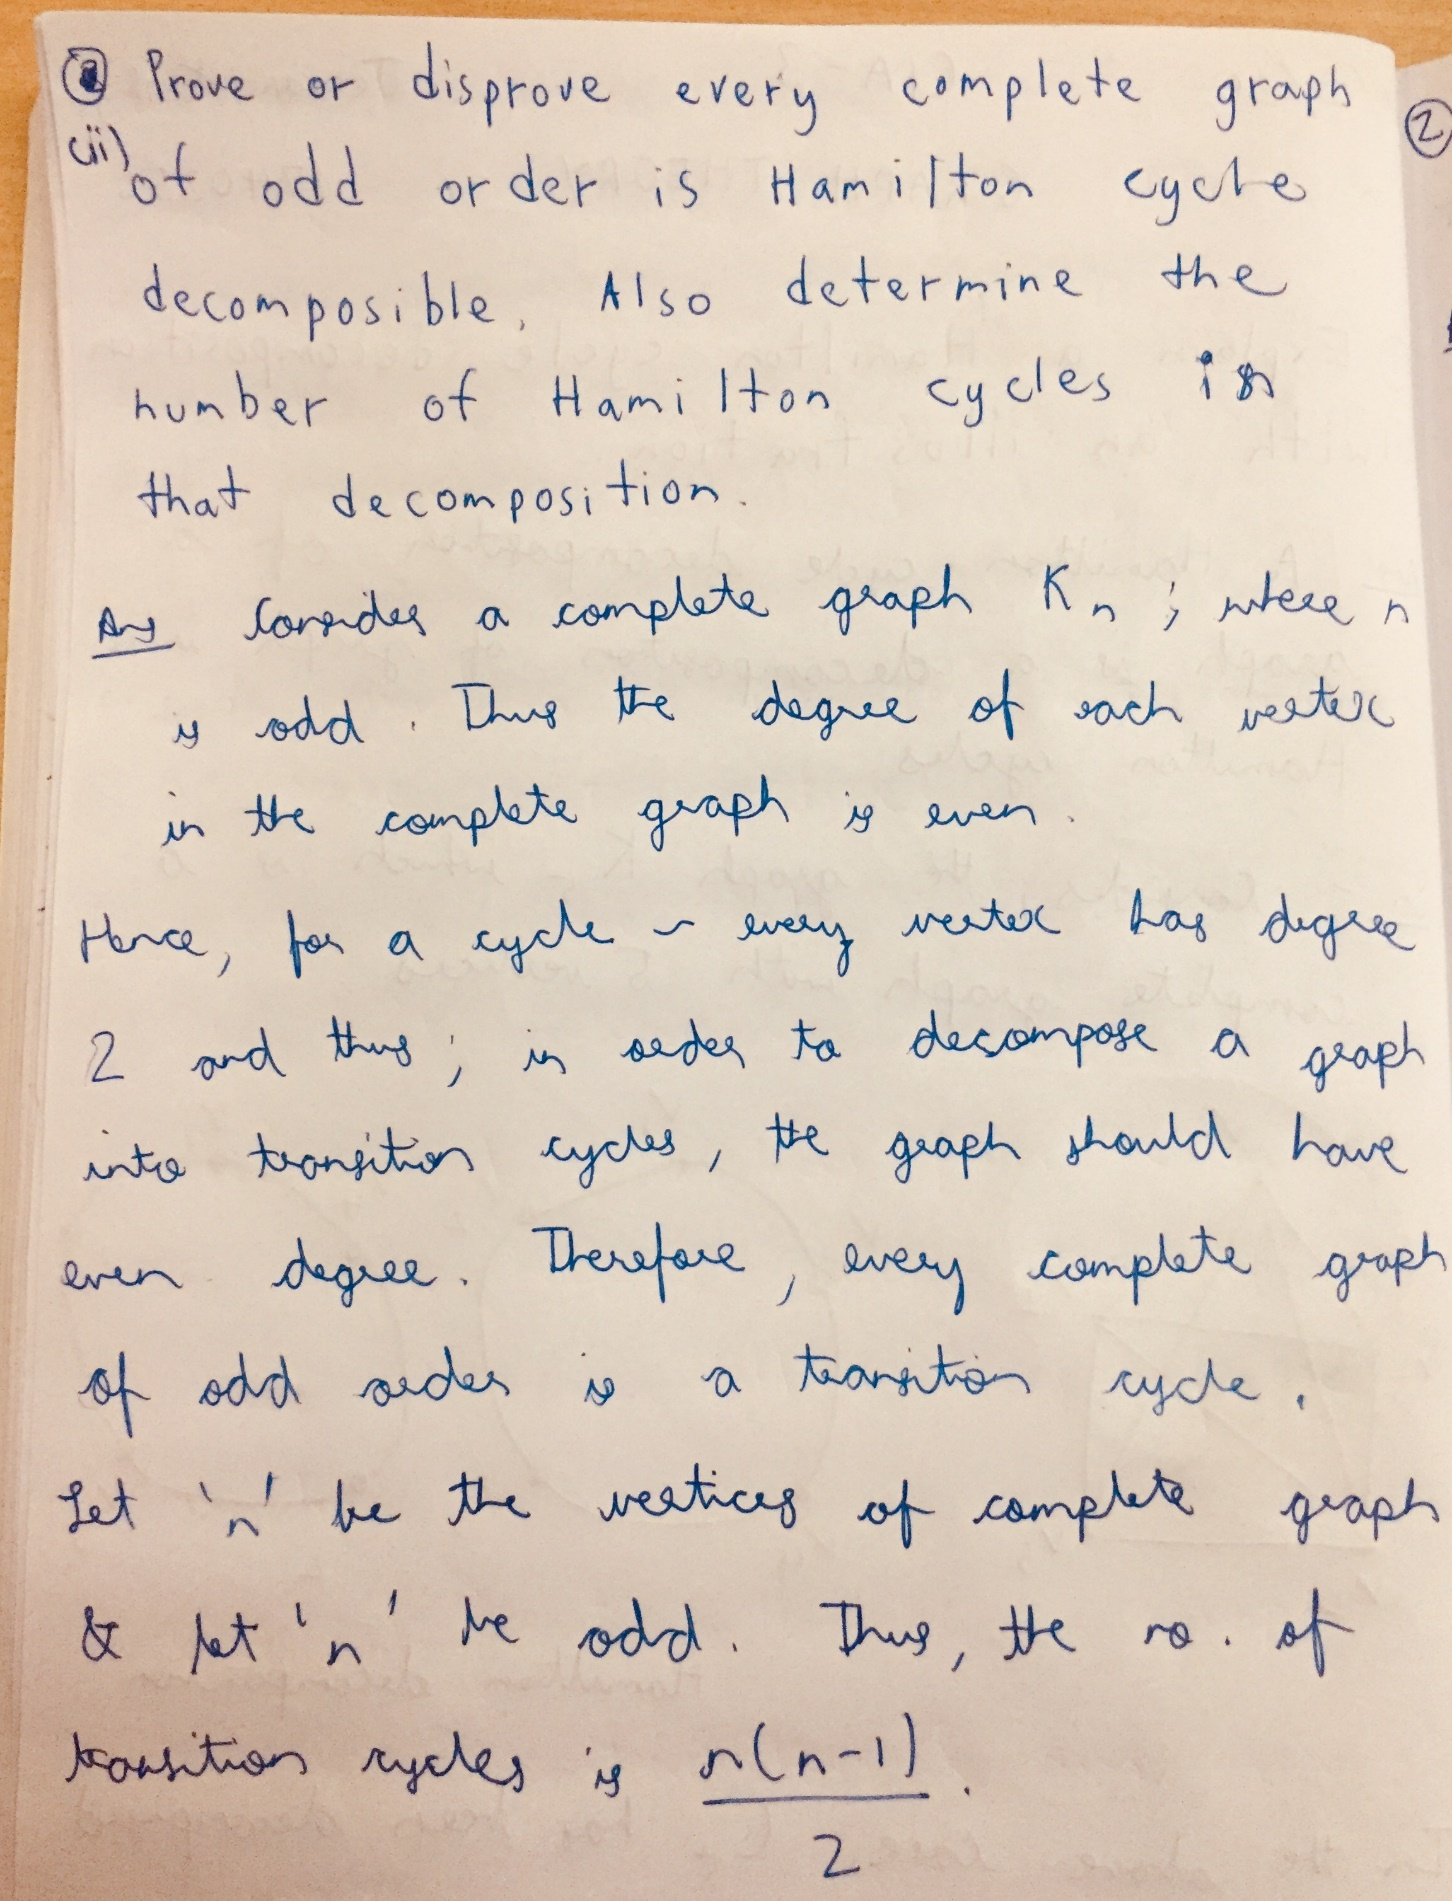 Prove or disprove every complete graph
(ii) of odd order is Hamilton cycle
decomposible. Also determine the
number of Hamilton cycles in
that decomposition.
Ans Consider a complete graph Kn ; where n
is odd. Thus the degree of each vertex
in the complete graph is even.
Hence, for a cycle ~ every vertex has degree
2 and thus; in order to decompose a graph
into transition cycles, the graph should have
even degree. Therefore, every complete graph
of odd order is a transition cycle.
Let 'n' be the vertices of complete graph
& let 'n' be odd. Thus, the no. of
transition cycles is n(n-1).
2
2